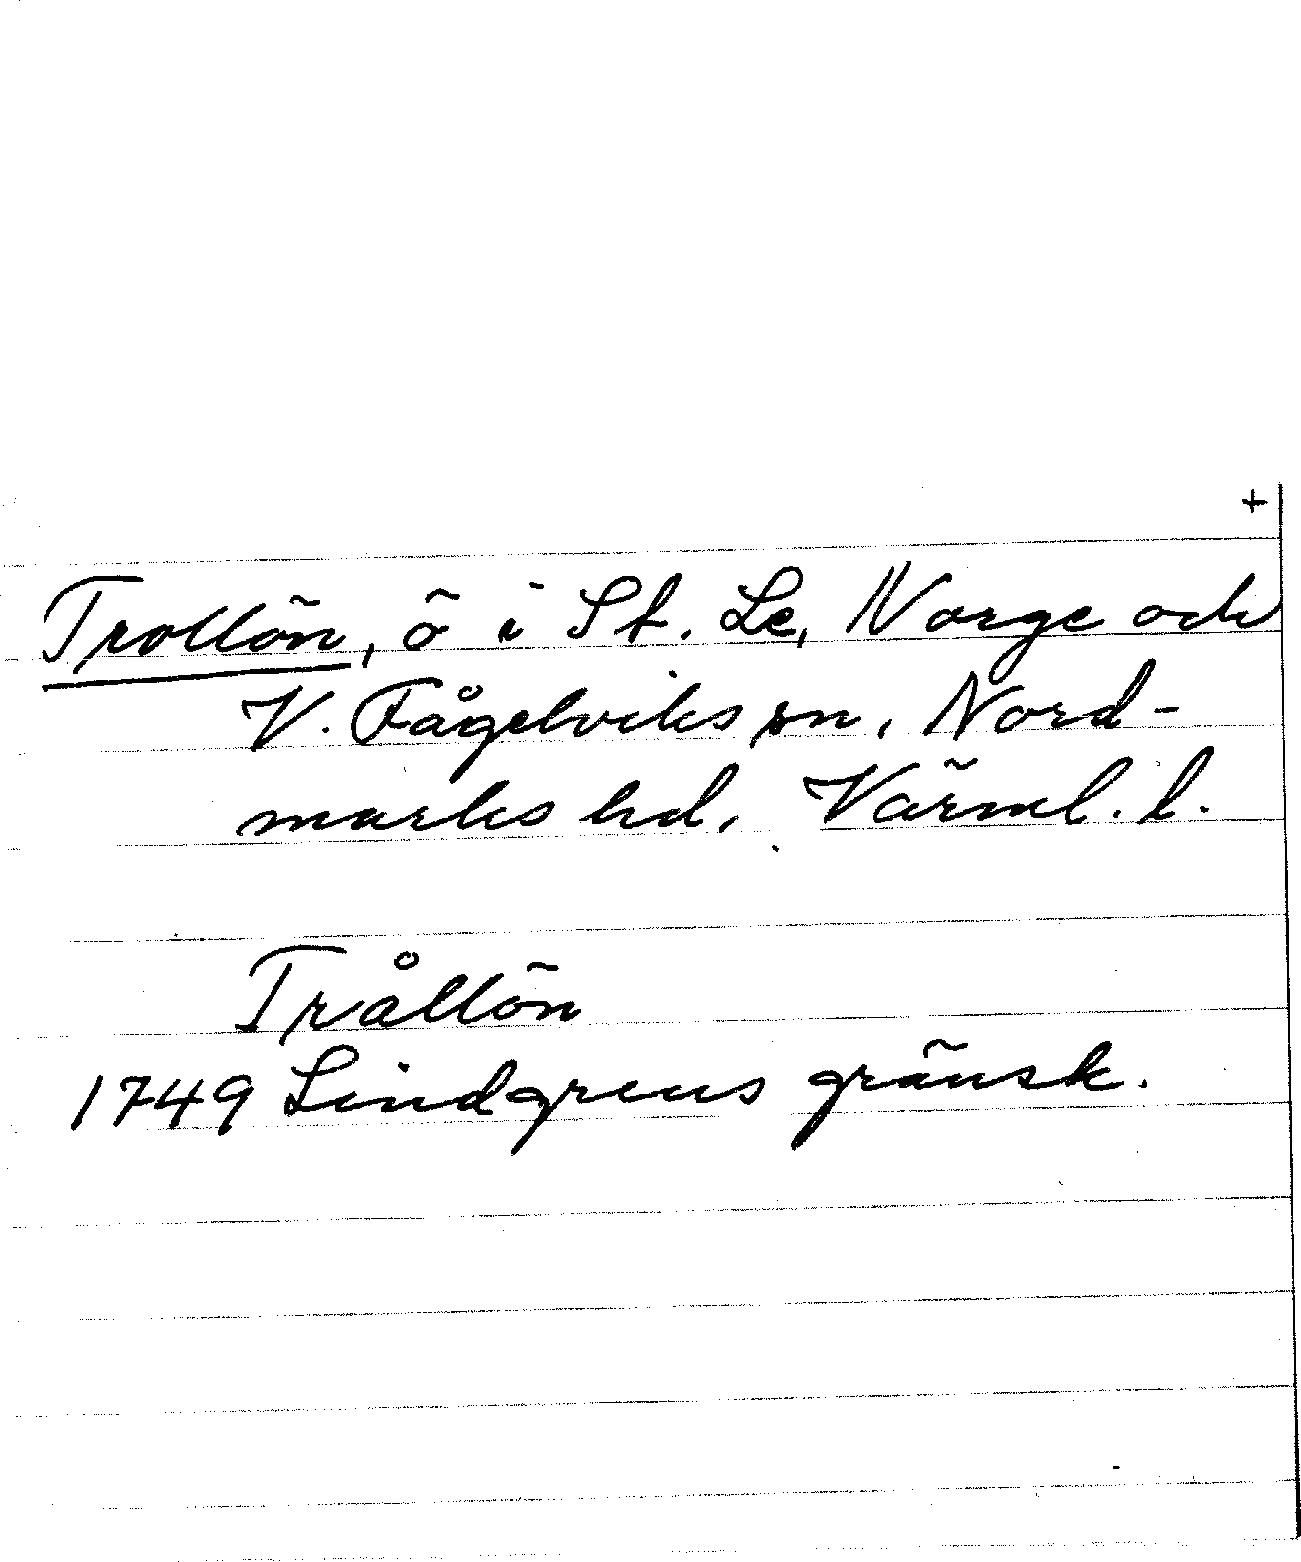 +
Trollön, ö i St. Le, Norge och
V. Fågelviks sn, Nord-
marks hd, Värml. l.
Trållön
1749 Lindgrens gränsk.